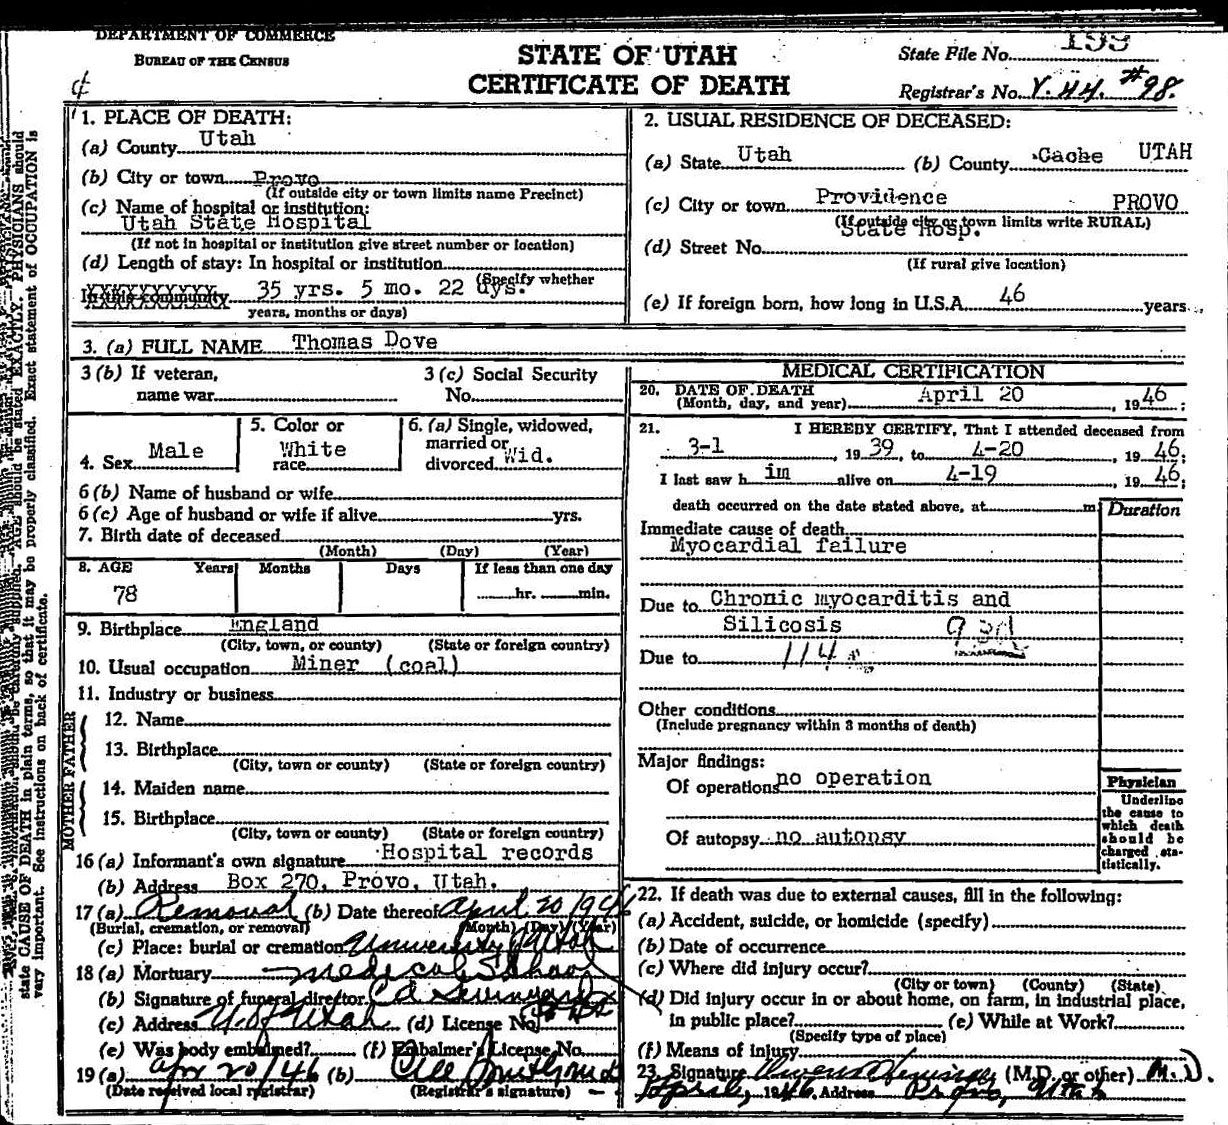 DEPARTMENT OF COMMERCE
BUREAU OF THE CENSUS
STATE OF UTAH
CERTIFICATE OF DEATH
State File No. 199
Registrar's No. Y.44. #98.
1. PLACE OF DEATH:
(a) County Utah
(b) City or town Provo
(If outside city or town limits name Precinct)
(c) Name of hospital or institution:
Utah State Hospital
(If not in hospital or institution give street number or location)
(d) Length of stay: In hospital or institution
(Specify whether
In this community 35 yrs. 5 mo. 22 dys.
years, months or days)
2. USUAL RESIDENCE OF DECEASED:
(a) State Utah (b) County Cache UTAH
(c) City or town Providence PROVO
(If outside city or town limits write RURAL)
State Hosp.
(d) Street No.
(If rural give location)
(e) If foreign born, how long in U.S.A. 46 years
3. (a) FULL NAME Thomas Dove
3 (b) If veteran,
name war
3 (c) Social Security
No.
4. Sex Male
5. Color or
race White
6. (a) Single, widowed,
married or
divorced Wid.
6 (b) Name of husband or wife
6 (c) Age of husband or wife if alive yrs.
7. Birth date of deceased
(Month) (Day) (Year)
8. AGE Years Months Days If less than one day
78 hr. min.
9. Birthplace England
(City, town, or county) (State or foreign country)
10. Usual occupation Miner (coal)
11. Industry or business
FATHER
12. Name
13. Birthplace
(City, town or county) (State or foreign country)
MOTHER
14. Maiden name
15. Birthplace
(City, town or county) (State or foreign country)
16 (a) Informant's own signature Hospital records
(b) Address Box 270, Provo, Utah.
17 (a) Removal (b) Date thereof April 20 1946
(Burial, cremation, or removal) (Month) (Day) (Year)
(c) Place: burial or cremation University of Utah
18 (a) Mortuary Medical School
(b) Signature of funeral director
(c) Address U. of Utah (d) License No.
(e) Was body embalmed? (f) Embalmer's License No.
19 (a) Apr 20/46 (b)
(Date received local registrar) (Registrar's signature)
MEDICAL CERTIFICATION
20. DATE OF DEATH
(Month, day, and year) April 20, 1946;
21. I HEREBY CERTIFY, That I attended deceased from
3-1, 1939, to 4-20, 1946;
I last saw him alive on 4-19, 1946;
death occurred on the date stated above, at m.
Duration
Immediate cause of death
Myocardial failure
Due to Chronic myocarditis and
Silicosis 93d
Due to 114
Other conditions
(Include pregnancy within 3 months of death)
Major findings:
Of operations no operation
Of autopsy no autopsy
Physician
Underline
the cause to
which death
should be
charged sta-
tistically.
22. If death was due to external causes, fill in the following:
(a) Accident, suicide, or homicide (specify)
(b) Date of occurrence
(c) Where did injury occur?
(City or town) (County) (State)
(d) Did injury occur in or about home, on farm, in industrial place,
in public place? (e) While at Work?
(Specify type of place)
(f) Means of injury
23. Signature (M.D. or other) M.D.
April, 1946 Address Provo, Utah
AGE should be stated EXACTLY. PHYSICIANS should
state CAUSE OF DEATH in plain terms, so that it may be properly classified. Exact statement of OCCUPATION is
very important. See instructions on back of certificate.